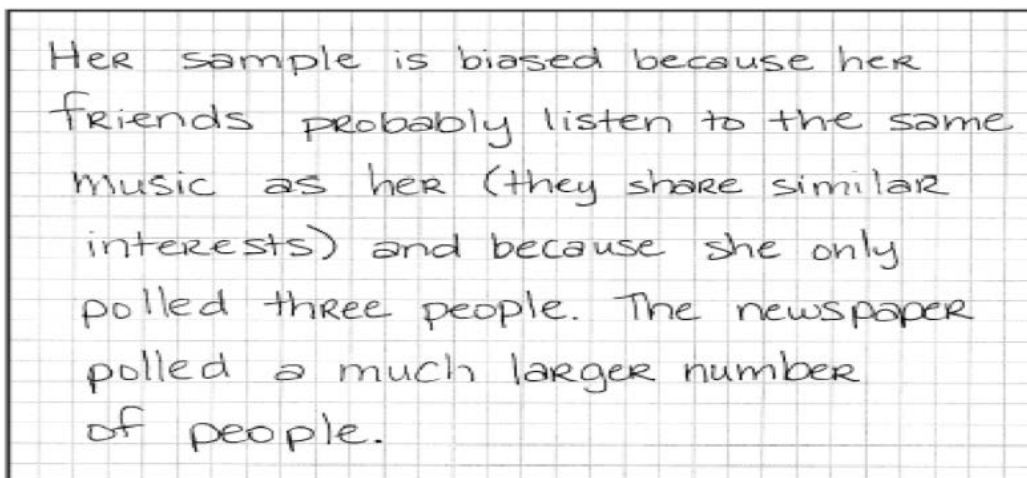 Her sample is biased because her
friends probably listen to the same
music as her (they share similar
interests) and because she only
polled three people. The newspaper
polled a much larger number
of people.